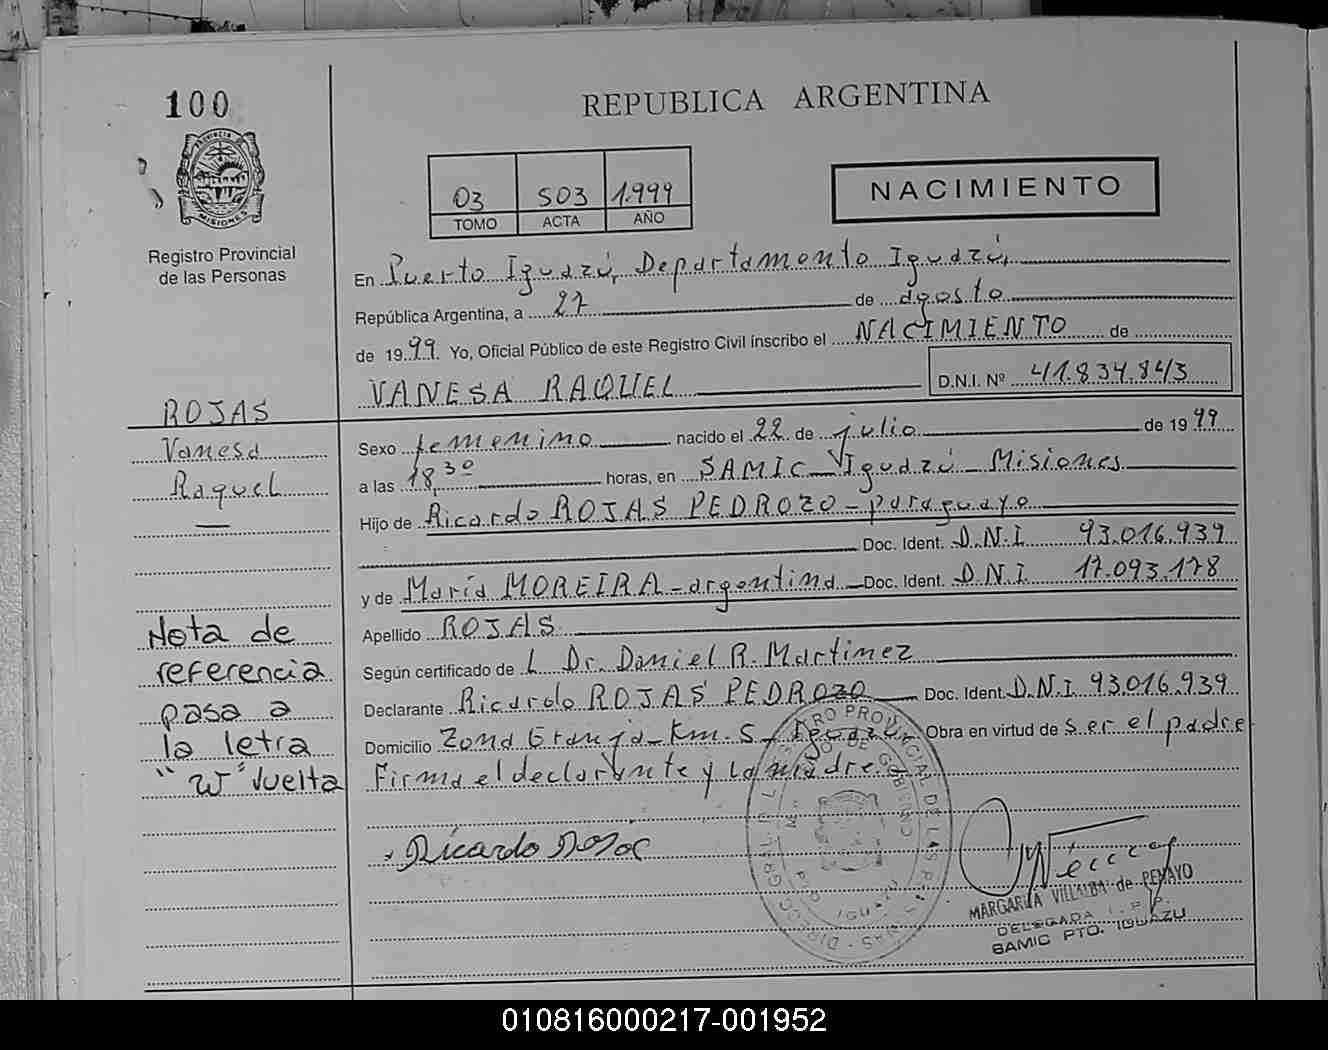 100
REPUBLICA ARGENTINA
03 503 1.999
TOMO ACTA AÑO
NACIMIENTO
MISIONES
Registro Provincial
de las Personas
En Puerto Iguazú, Departamento Iguazú,
República Argentina, a 27 de agosto
de 1999. Yo, Oficial Público de este Registro Civil inscribo el NACIMIENTO de
VANESA RAQUEL D.N.I. Nº 41.834.843
ROJAS
Vanesa
Raquel
Sexo femenino nacido el 22 de julio de 1999
a las 18,30 horas, en SAMIC - Iguazú - Misiones
Hijo de Ricardo ROJAS PEDROZO - paraguayo
Doc. Ident. D.N.I 93.016.939
y de María MOREIRA - argentina Doc. Ident. D.N.I. 17.093.178
Apellido ROJAS
Según certificado de L Dr. Daniel R. Martinez
Declarante Ricardo ROJAS PEDROZO Doc. Ident. D.N.I 93.016.939
Domicilio Zona Granja - Km. 5 - Iguazú Obra en virtud de ser el padre
Firma el declarante y la madre.
Nota de
referencia
pasa a
la letra
"W" Vuelta
Ricardo Rojas
MARGARITA VILLALBA de PENAYO
DELEGADA
SAMIC PTO. IGUAZU
010816000217-001952